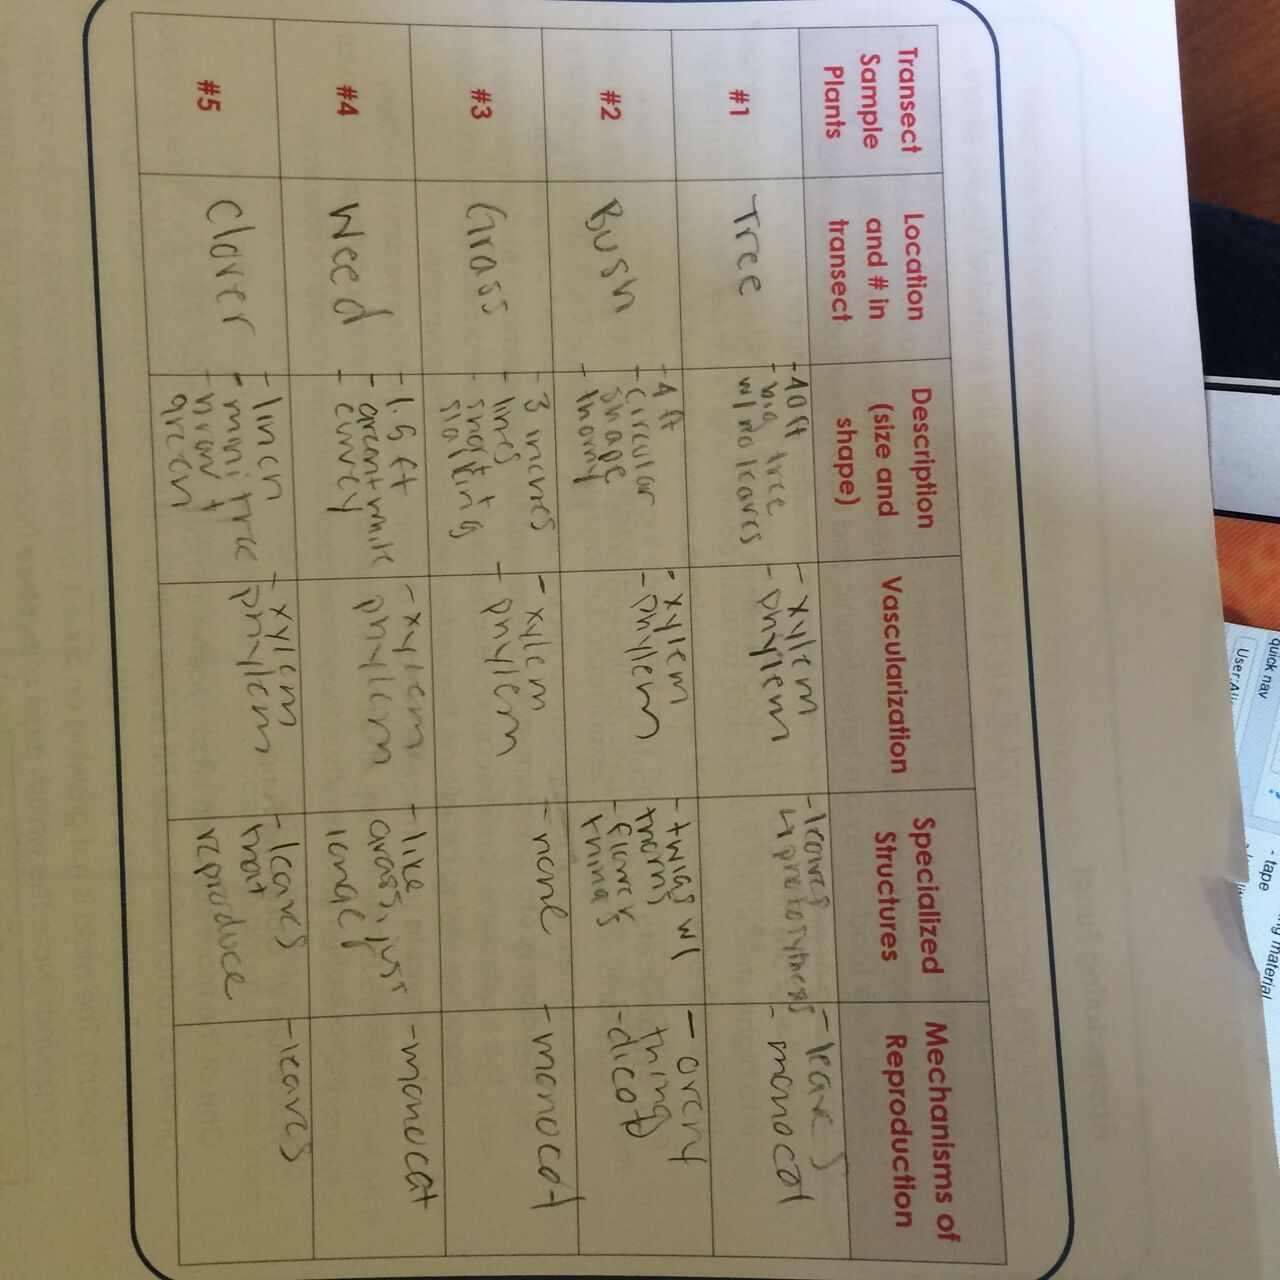 Transect
Sample
Plants
Location
and # in
transect
Description
(size and
shape)
Vascularization
Specialized
Structures
Mechanisms of
Reproduction
#1
Tree
-40ft
-big tree
w/no leaves
-xylem
-phylem
-leaves
-leaves
-monocot
#2
Bush
-4ft
-circular
shape
-thorny
-xylem
-phylem
-twigs w/
thorns
things
thing
-dicot
#3
Grass
-3 inches
-lines
-short +
-xylem
-phylem
-none
-monocot
#4
Weed
-1.5 ft
-curvey
-xylem
phylem
-like
grass, just
-monocat
#5
Clover
-1inch
-mini tree
green
-xylem
-phylem
-leaves
that
reproduce
-leaves
quick nav
- tape
my material